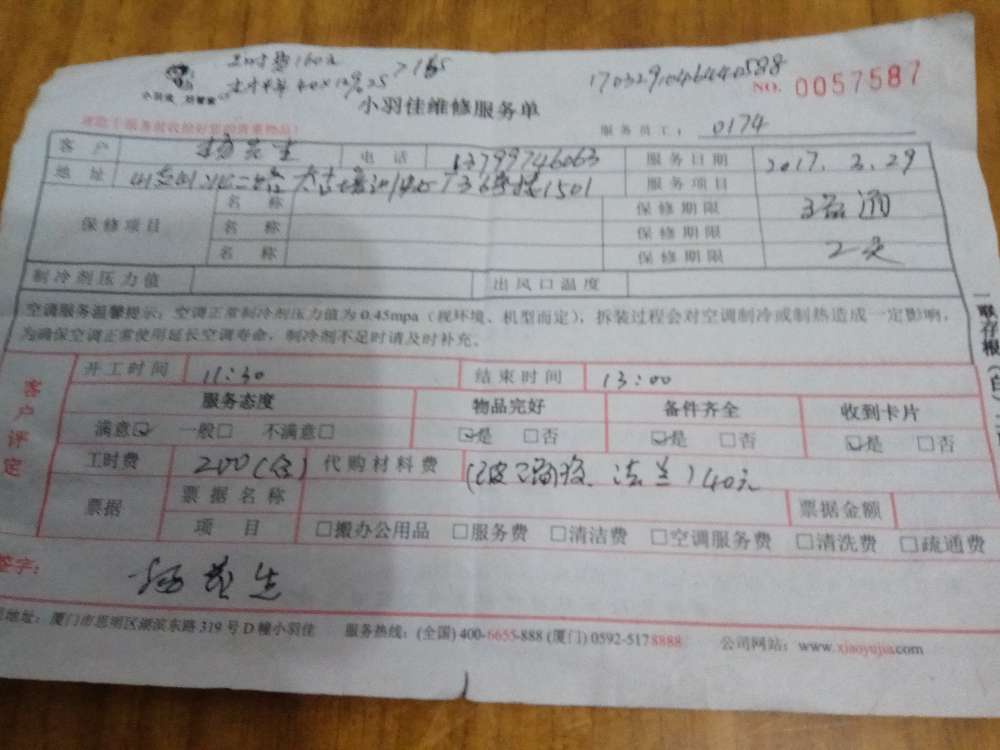 160元
40×12%
1703291046440588
小羽佳
NO. 0057587
小羽佳维修服务单
服务员工： 0174
客户 电话 13799746063 服务日期 2017.3.29
地址 1501 服务项目
保修项目 名称 保修期限
名称 保修期限
名称 保修期限 2天
制冷剂压力值 出风口温度
空调服务温馨提示：空调正常制冷剂压力值为0.45mpa（视环境、机型而定），拆装过程会对空调制冷或制热造成一定影响，
为确保空调正常使用延长空调寿命，制冷剂不足时请及时补充。
客户评定
开工时间 11:30 结束时间 13:00
服务态度 物品完好 备件齐全 收到卡片
满意☑ 一般□ 不满意□ ☑是 □否 ☑是 □否 ☑是 □否
工时费 200 代购材料费 (玻璃胶、法兰)40元
票据 票据名称 票据金额
项目 □搬办公用品 □服务费 □清洁费 □空调服务费 □清洗费 □疏通费
签字：
地址：厦门市思明区湖滨东路319号D幢小羽佳 服务热线：(全国) 400-6655-888 (厦门) 0592-5178888 公司网站：www.xiaoyujia.com